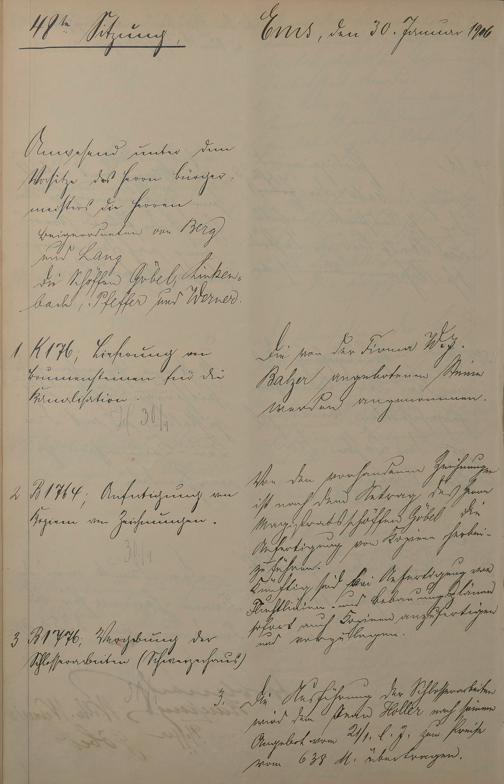 48te Sitzung.
Ems, den 30. Januar 1906
Anwesend unter dem
Vorsitze des Herrn Bürger-
meisters die Herren
Beigeordneten von Berg
und Lang
die Schöffen Göbel, Linken-
bach, Pfeffer und Werner.
1 K176, Lieferung von
Brunnensteinen für die
Kanalisation.
30/1
Die von der Firma W. J.
Balzer angebotenen Steine
werden angenommen.
2 B1764; Anfertigung von
Kopien von Zeichnungen.
30/1
Von den vorhandenen Zeichnungen
ist nach dem Antrag des Herrn
Magistratsschöffen Göbel die
Anfertigung von Kopien herbei-
zuführen.
Künftig sind bei Anfertigung von
Fluchtlinien- und Bebauungsplänen
sofort auch Kopien anzufertigen
und vorzulegen.
3 B1776, Vergebung der
Schlosserarbeiten (Schweizerhaus)
3. Die Ausführung der Schlosserarbeiten
wird dem Holler nach seinem
Angebot vom 24/1. l. J. zum Preise
von 638 M. übertragen.